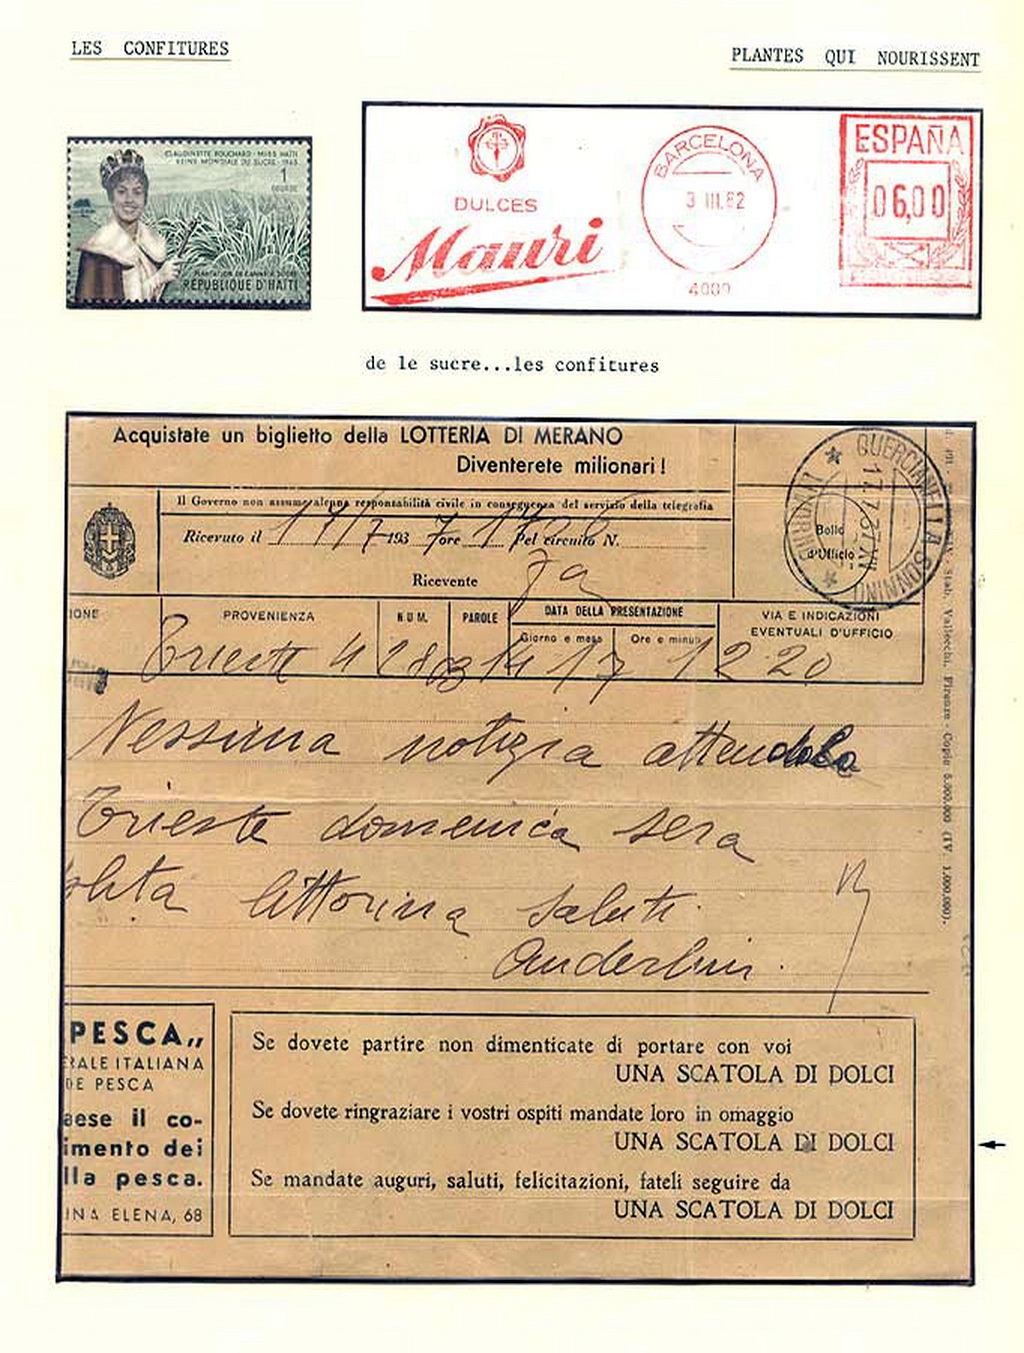 LES CONFITURES
PLANTES QUI NOURISSENT
CLAUDINETTE FOUCHARD - MISS HAITI
REINE MONDIALE DU SUCRE - 1963
1
GOURDE
PLANTATION DE CANNE A SUCRE
REPUBLIQUE D'HAITI
DULCES
Mauri
BARCELONA
3 III.82
4000
ESPAÑA
06,00
de le sucre...les confitures
Acquistate un biglietto della LOTTERIA DI MERANO
Diventerete milionari!
Il Governo non assume alcuna responsabilità civile in conseguenza del servizio della telegrafia
Ricevuto il 17/7 1937 ore Pel circuito N.
Ricevente
QUERCIANELLA SONNINO
(LIVORNO)
17.7.37.XV
Bollo
d'Ufficio
IONE PROVENIENZA NUM. PAROLE DATA DELLA PRESENTAZIONE VIA E INDICAZIONI
EVENTUALI D'UFFICIO
Giorno e mese Ore e minuti
Trieste 4 14 17 12 20
Nessuna notizia attendola
Trieste domenica sera
littorina saluti.
Stab. Vallecchi, Firenze - Copie 5.000.000 (IV. 1.000.000).
PESCA„
RALE ITALIANA
DE PESCA
aese il co-
imento dei
lla pesca.
INA ELENA, 68
Se dovete partire non dimenticate di portare con voi
UNA SCATOLA DI DOLCI
Se dovete ringraziare i vostri ospiti mandate loro in omaggio
UNA SCATOLA DI DOLCI
Se mandate auguri, saluti, felicitazioni, fateli seguire da
UNA SCATOLA DI DOLCI